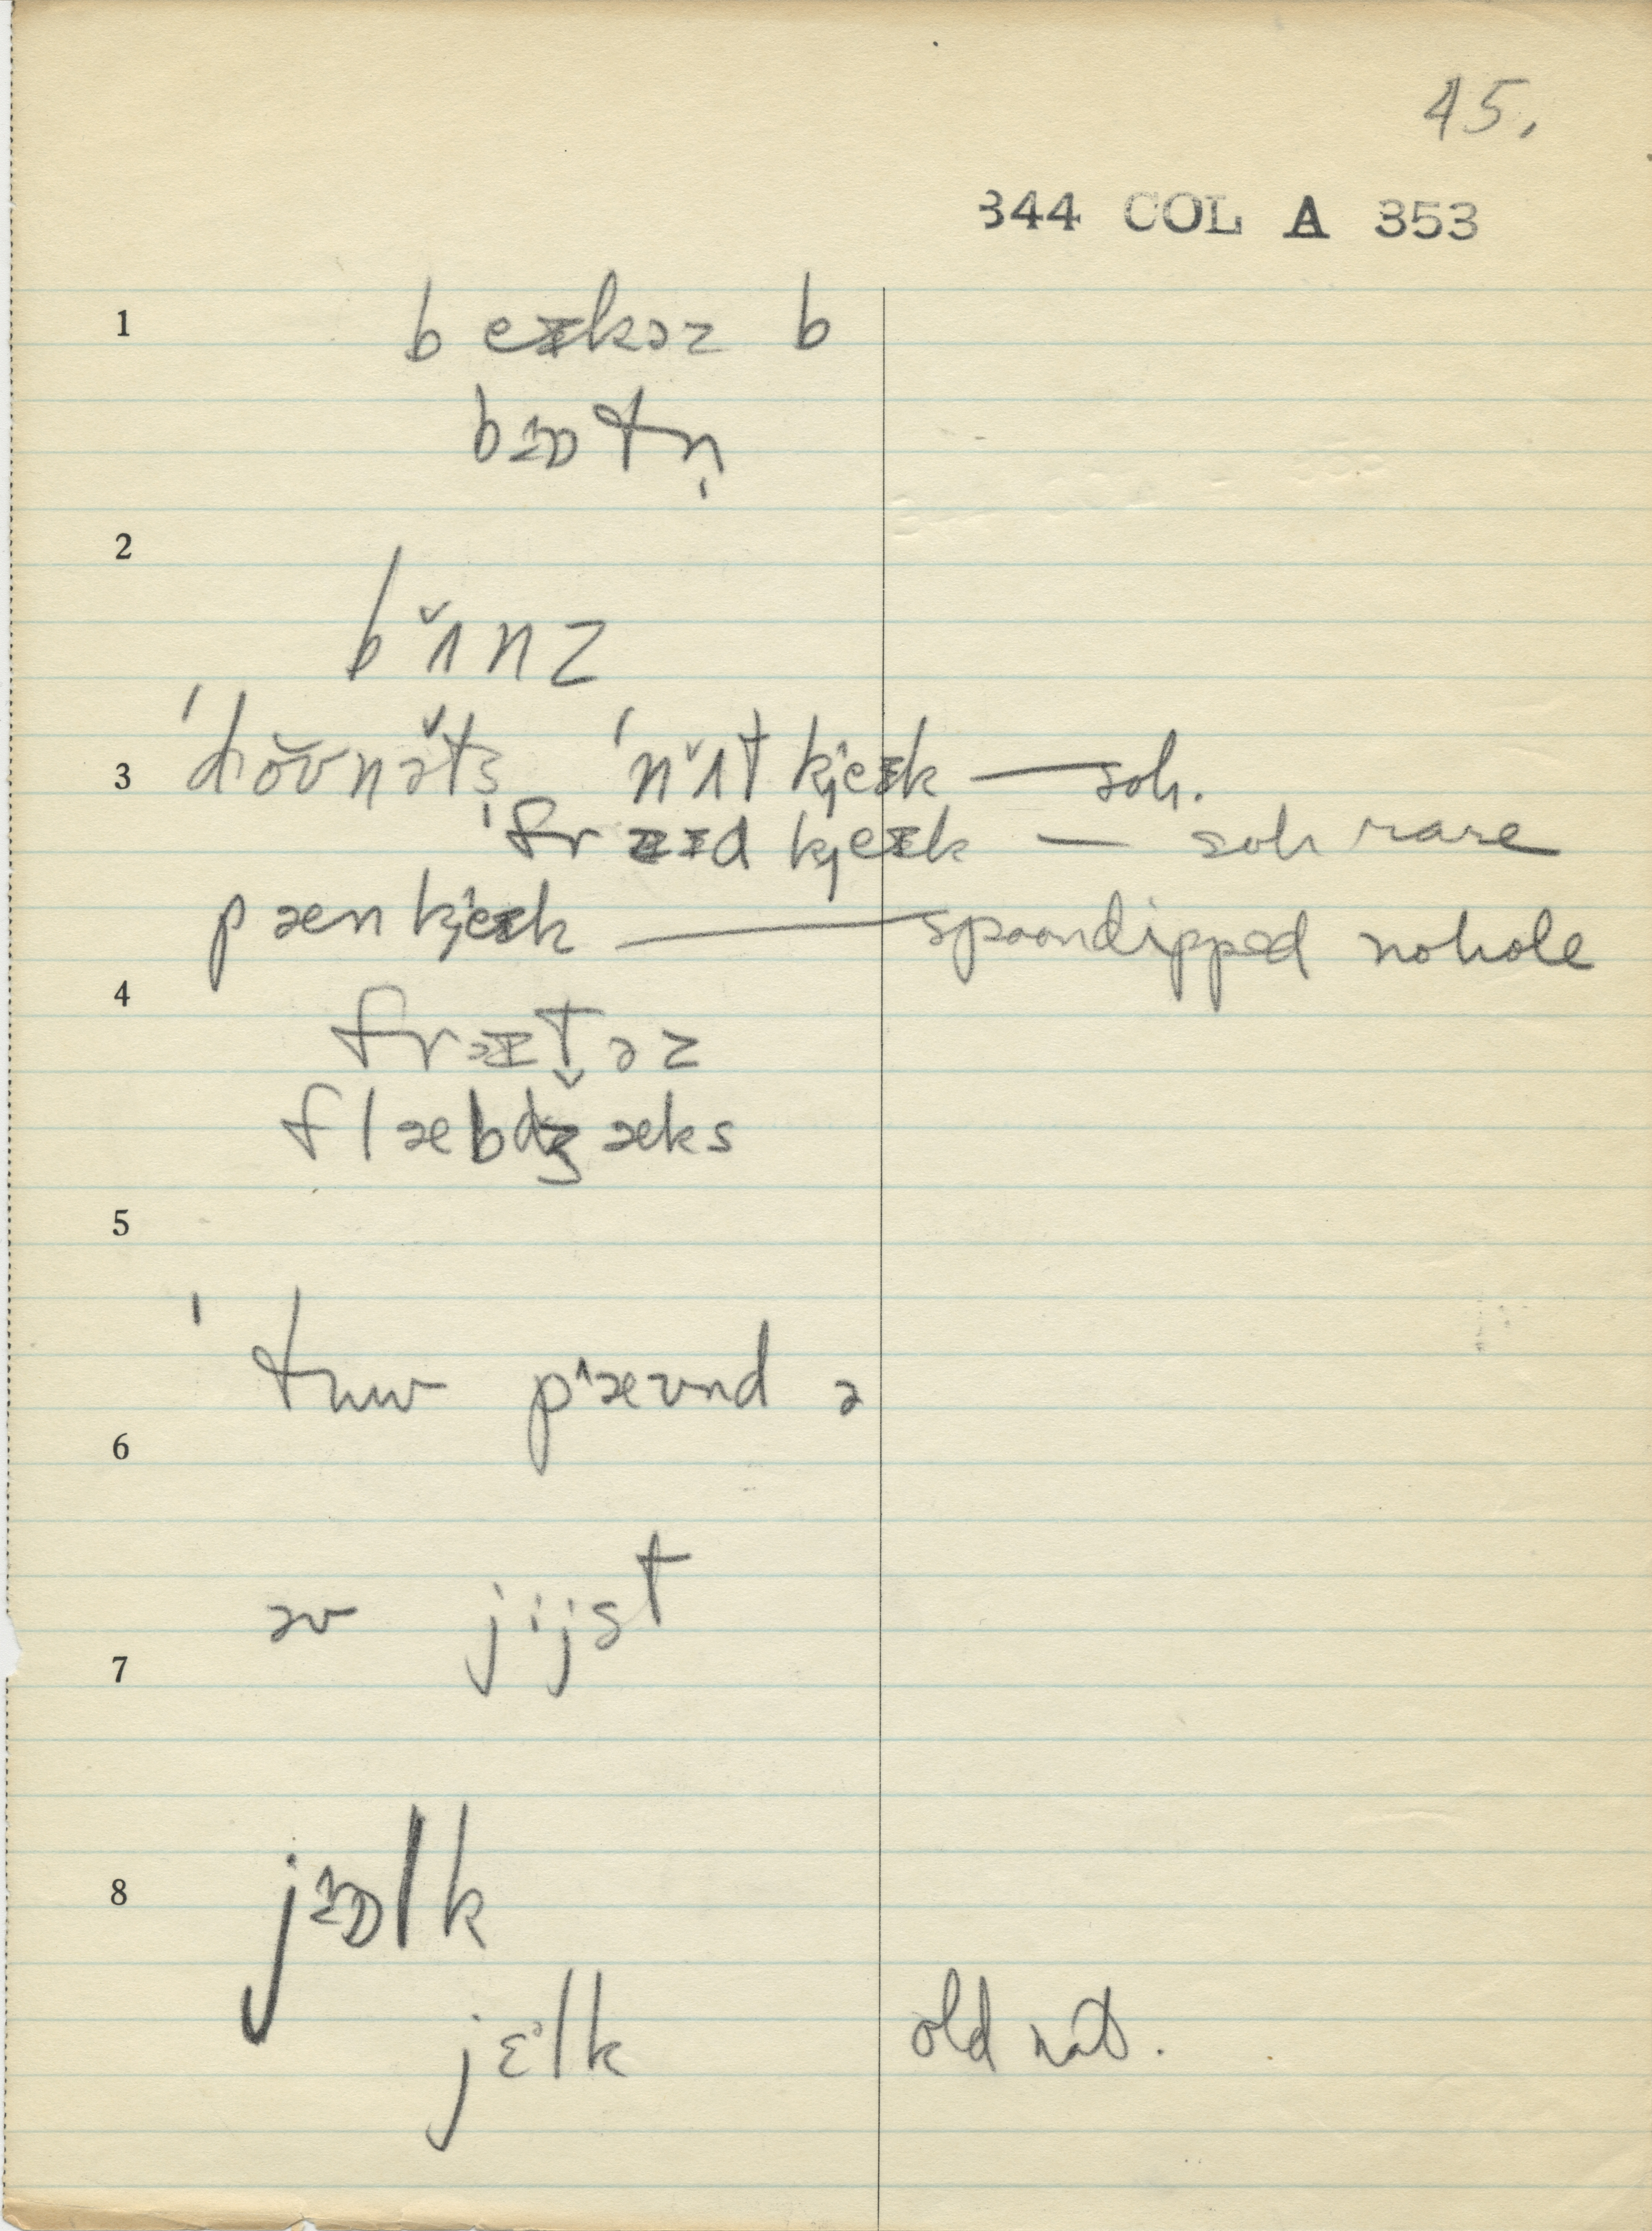 45.
344 COL A 353
1 b eɪkəz b
bɔtn̩
2
bʌ̆nz
3 ˈdōvnə̆ts ˈnʌ̆t kjeɪk — soh.
ˈfraɪd kjeɪk — soh rare
pæn kjeɪk — spoondipped nohole
4
frɪt̬əz
flæbdʒæks
5
ˈtuw pæʊnd ə
6
əv jijst
7
8 jɔlk
jɛᵊlk old nat.